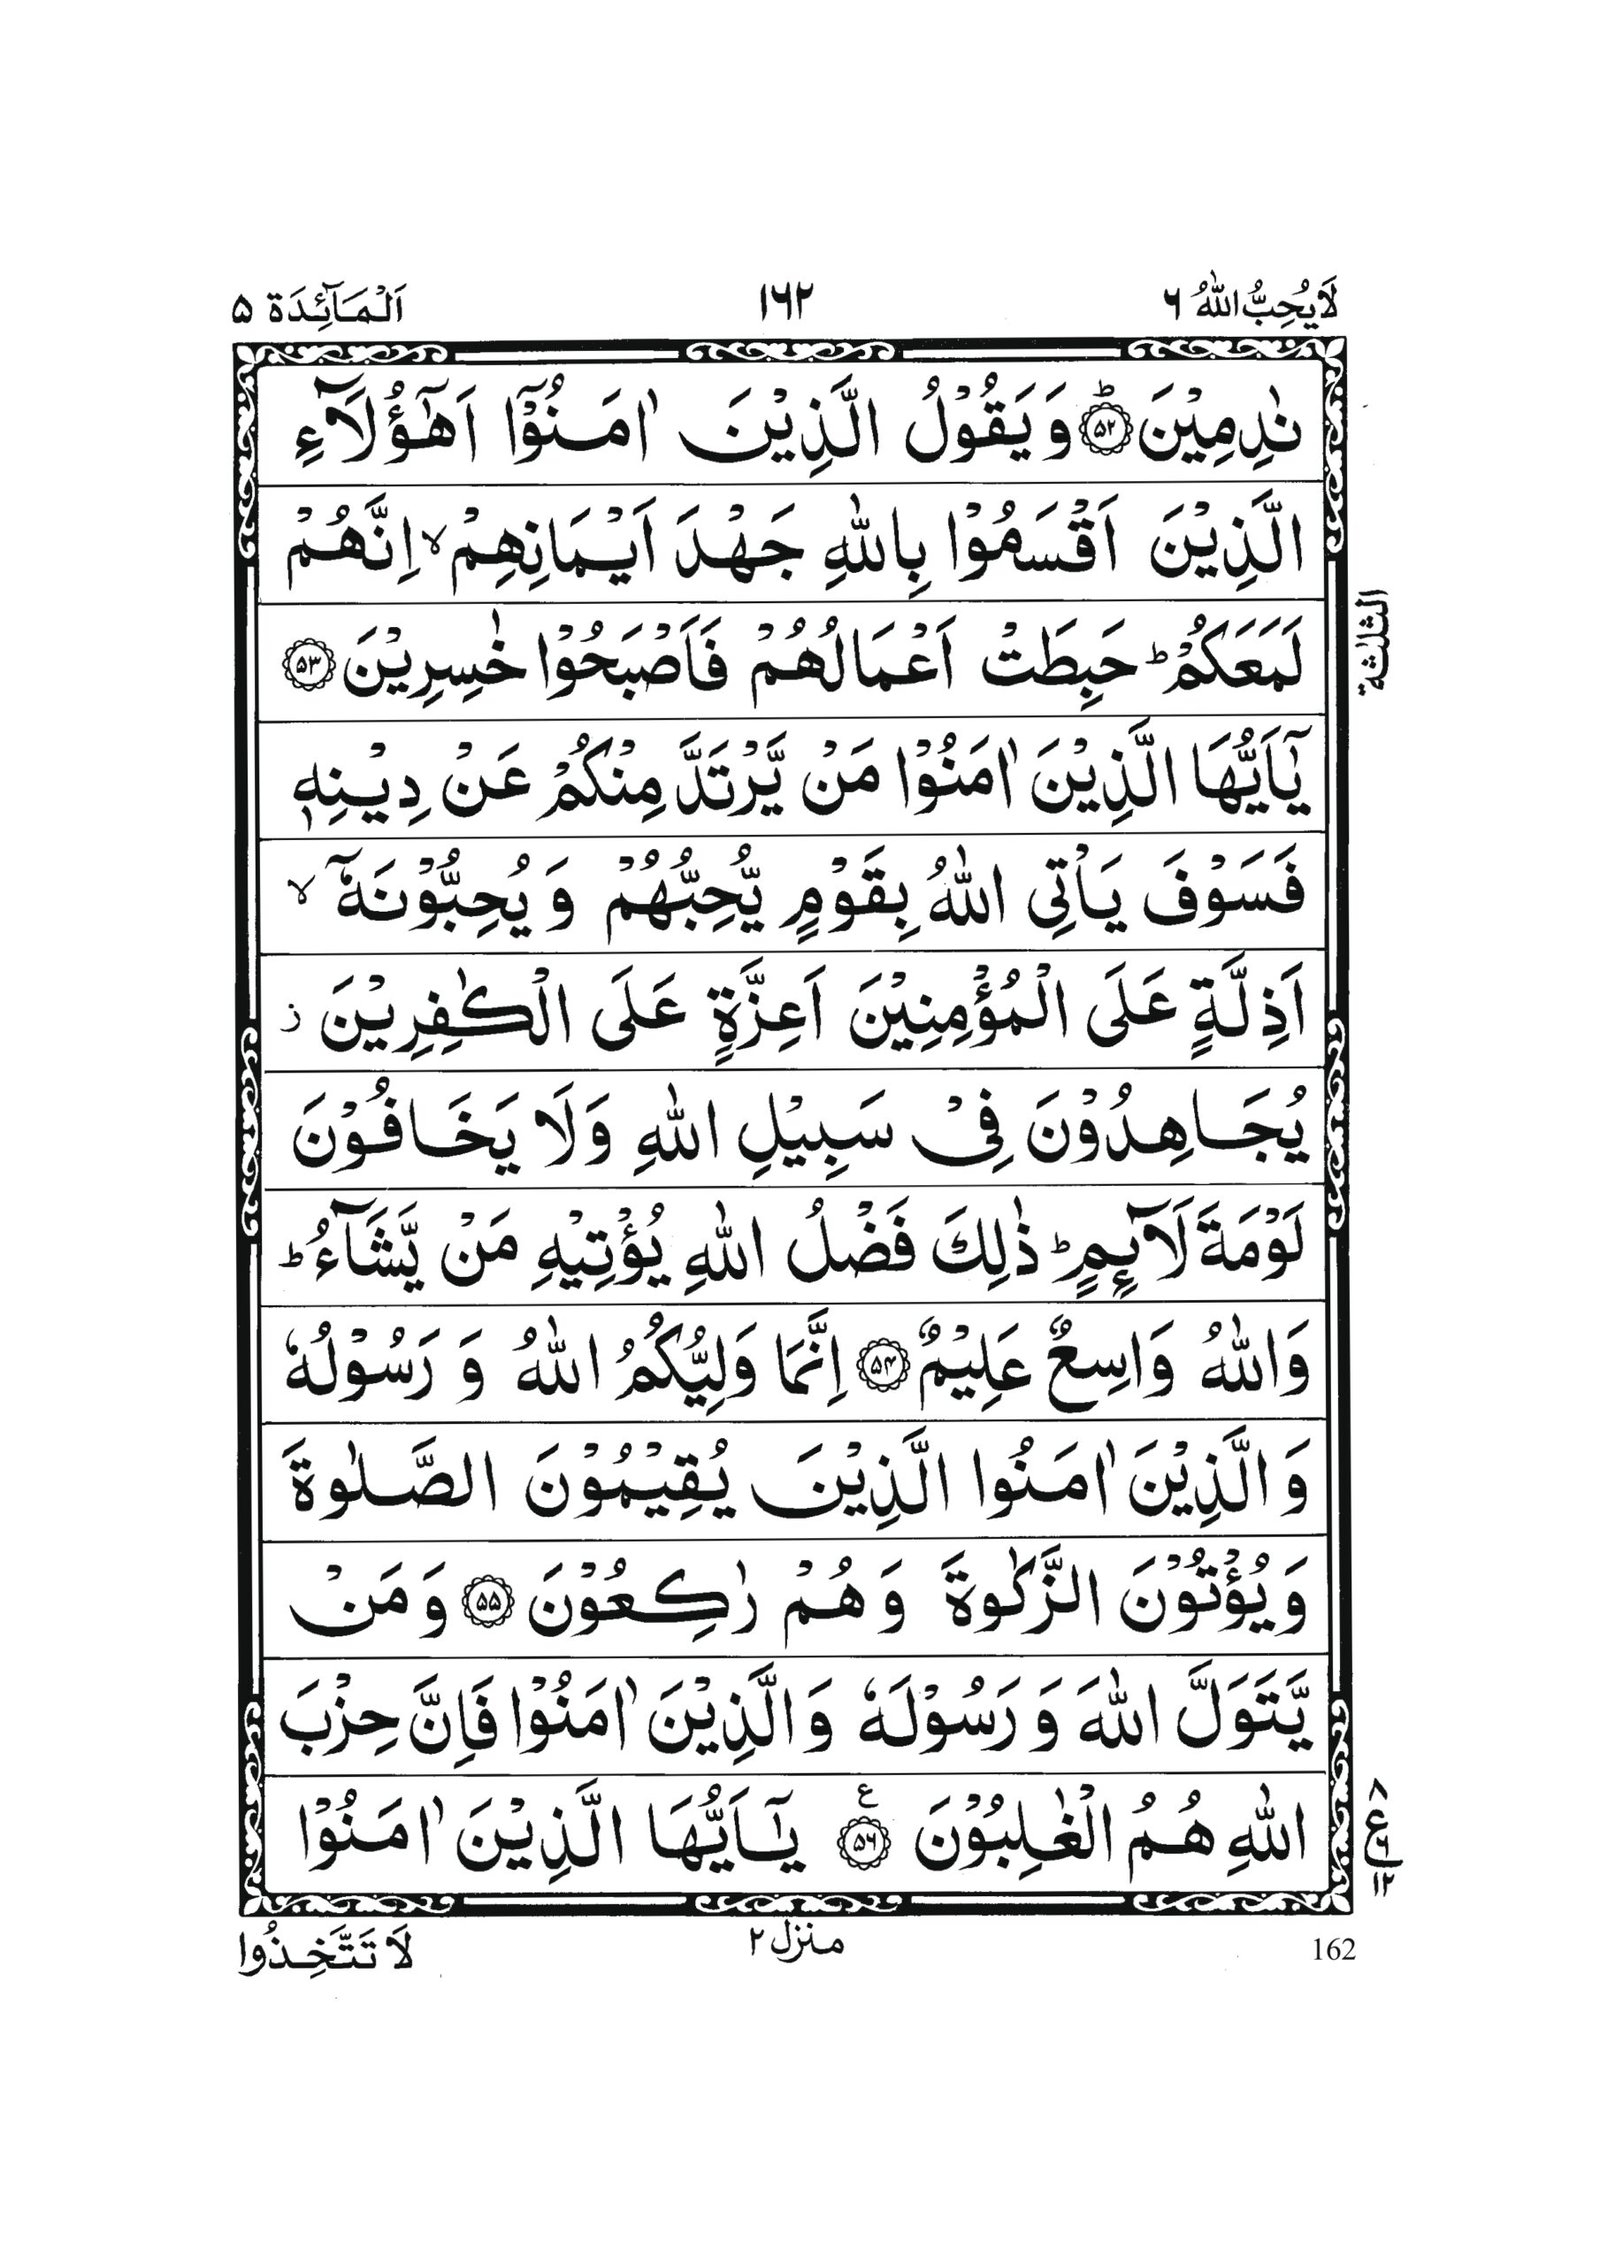 لَا يُحِبُّ اللّٰهُ ٦ ١٦٢ اَلْمَآئِدَة ۵
نٰدِمِيْنَ ؕ ﴿۵۲﴾ وَ يَقُوْلُ الَّذِيْنَ اٰمَنُوْۤا اَهٰۤؤُلَآءِ
الَّذِيْنَ اَقْسَمُوْا بِاللّٰهِ جَهْدَ اَيْمَانِهِمْ ۙ اِنَّهُمْ
لَمَعَكُمْ ؕ حَبِطَتْ اَعْمَالُهُمْ فَاَصْبَحُوْا خٰسِرِيْنَ ﴿۵۳﴾
يٰۤاَيُّهَا الَّذِيْنَ اٰمَنُوْا مَنْ يَّرْتَدَّ مِنْكُمْ عَنْ دِيْنِهٖ
فَسَوْفَ يَاْتِى اللّٰهُ بِقَوْمٍ يُّحِبُّهُمْ وَ يُحِبُّوْنَهٗۤ ۙ
اَذِلَّةٍ عَلَى الْمُؤْمِنِيْنَ اَعِزَّةٍ عَلَى الْكٰفِرِيْنَ ز
يُجَاهِدُوْنَ فِىْ سَبِيْلِ اللّٰهِ وَلَا يَخَافُوْنَ
لَوْمَةَ لَآئِمٍ ؕ ذٰلِكَ فَضْلُ اللّٰهِ يُؤْتِيْهِ مَنْ يَّشَآءُ ؕ
وَاللّٰهُ وَاسِعٌ عَلِيْمٌ ﴿۵۴﴾ اِنَّمَا وَلِيُّكُمُ اللّٰهُ وَ رَسُوْلُهٗ
وَ الَّذِيْنَ اٰمَنُوا الَّذِيْنَ يُقِيْمُوْنَ الصَّلٰوةَ
وَ يُؤْتُوْنَ الزَّكٰوةَ وَ هُمْ رٰكِعُوْنَ ﴿۵۵﴾ وَ مَنْ
يَّتَوَلَّ اللّٰهَ وَ رَسُوْلَهٗ وَ الَّذِيْنَ اٰمَنُوْا فَاِنَّ حِزْبَ
اللّٰهِ هُمُ الْغٰلِبُوْنَ ﴿۵۶﴾ ع يٰۤاَيُّهَا الَّذِيْنَ اٰمَنُوْا
الثلٰثة
٨ ع ١٢
لَا تَتَّخِذُوا منزل ٢ 162